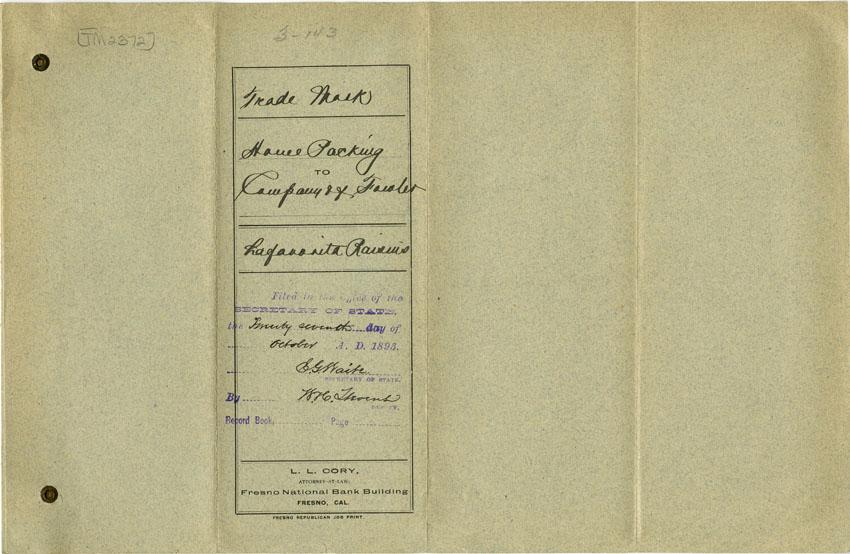 [TM2372]
3-143
Trade Mark
Home Packing
TO
Company of Fowler
Lafavorita Raisins
Filed in the office of the
SECRETARY OF STATE,
the Twenty seventh day of
October A. D. 1893.
E.G. Waite
SECRETARY OF STATE.
By W.H.
DEPUTY.
Record Book, Page
L. L. CORY,
ATTORNEY-AT-LAW,
Fresno National Bank Building
FRESNO, CAL.
FRESNO REPUBLICAN JOB PRINT.